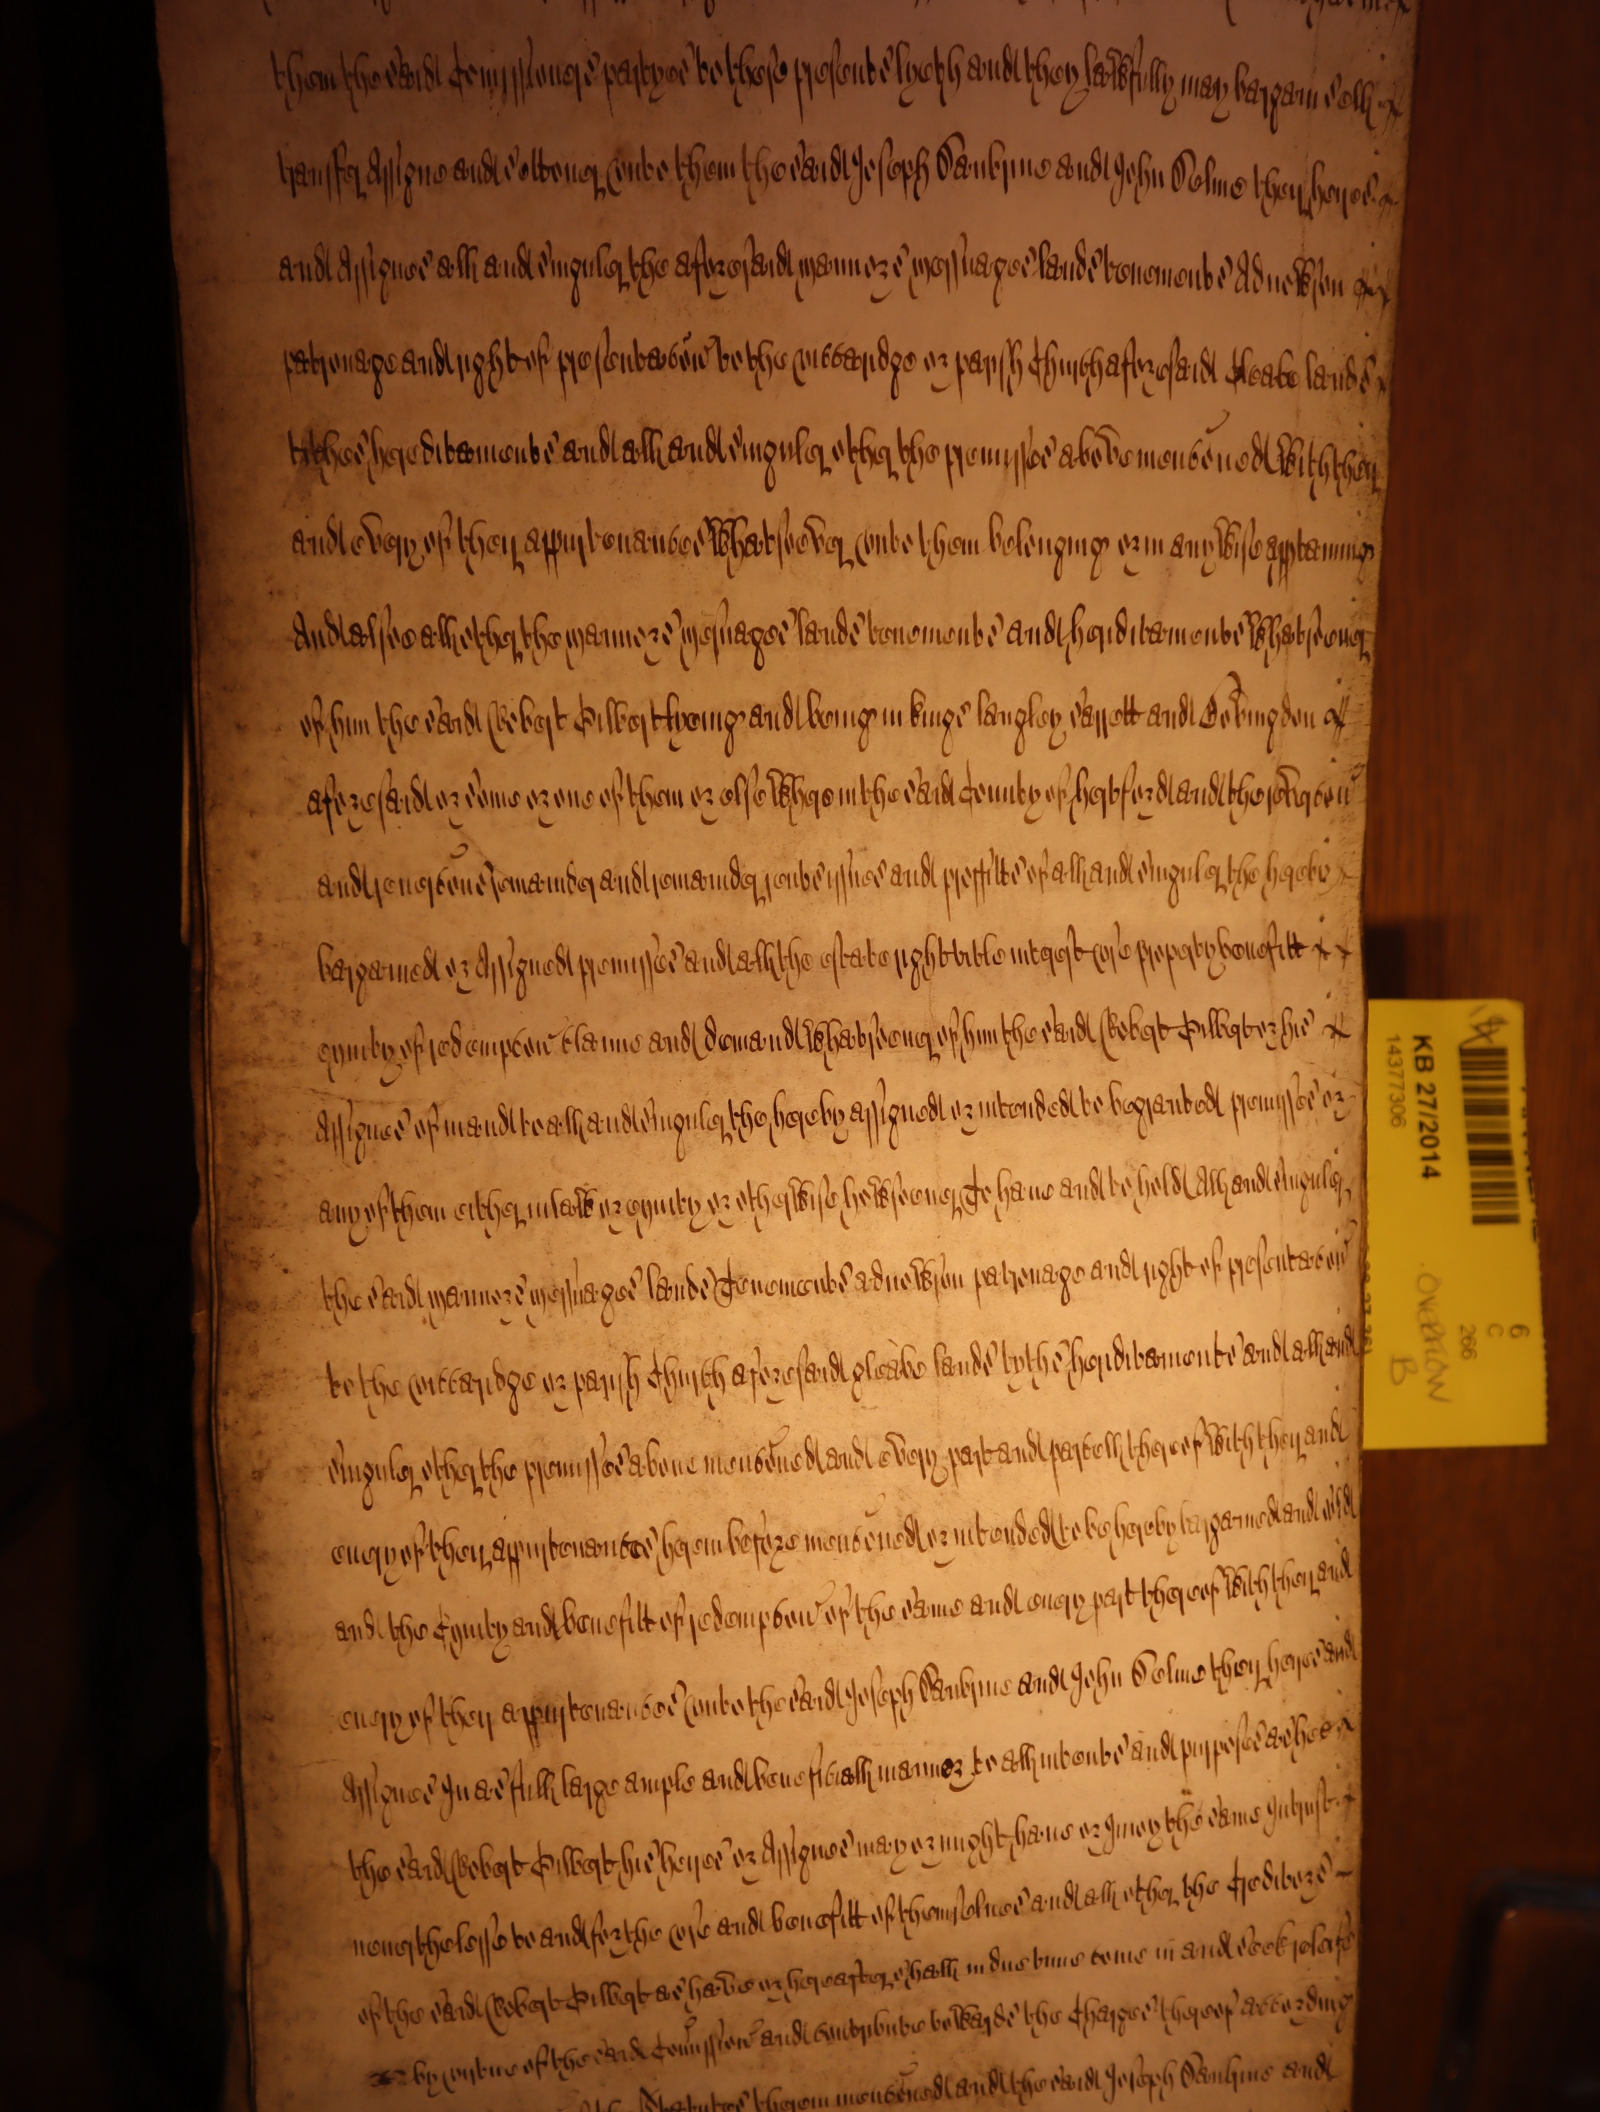 them the said Comissioners partyes to these presents lyeth and they lawfully may bargain sell
transfer Assigne and settover unto them the said Joseph and John Solme their heires
and Assignes all and singuler the aforesaid mannors messuages lands tenements Advowson
patronage and right of presentacon to the viccaridge or parish Church aforesaid Gleabe lands
tythes hereditaments and all and singuler other the premisses above menconed with their
and every of their appurtenances whatsoever unto them belonging or in any wise apptaining
And alsoe all other the mannors messuages lands tenements and hereditaments whatsoever
of him the said Robert Gilbert lyeing and being in Kings langley Sarrett and Bovingdon
aforesaid or some or one of them or elsewhere in the said County of hertford and the revercon
and revercons remainder and remainder rents issues and proffitts of all and singuler the hereby
bargained or Assigned premisses and all the estate right title interest use property benefitt
equity of redempcon claime and demand whatsoever of him the said Robert Gilbert or his
Assignes of in and to all and singuler the hereby assigned or intended to be granted premisses or
any of them either in law or equity or otherwise howsoever To have and to hold All and singuler
the said mannors messuages lands Tenements advowson patronage and right of presentacon
to the viccaridge or parish Church aforesaid gleabe lands tythes hereditaments and all and
singuler other the premisses above menconed and every part and parcell thereof with their and
every of their appurtenances herein before menconed or intended to be hereby bargained and sold
and the Equity and benefitt of redempcon of the same and every part thereof with their and
every of their appurtenances unto the said Joseph and John Solme their heires and
Assignes In as full large ample and beneficiall manner to all intents and purposes as hee
the said Robert Gilbert his heires or Assignes may or might have or Injoy the same In trust
neverthelesse to and for the use and benefitt of themselves and all other the Creditors
of the said Robert Gilbert as have or hereafter shall in due time come in and seek releife
by vertue of the said Comission and contribute towards the Charges thereof according
Statutes therein menconed and the said Joseph and
KB 27/2014
14377306
OVERFLOW
B
6
C
266